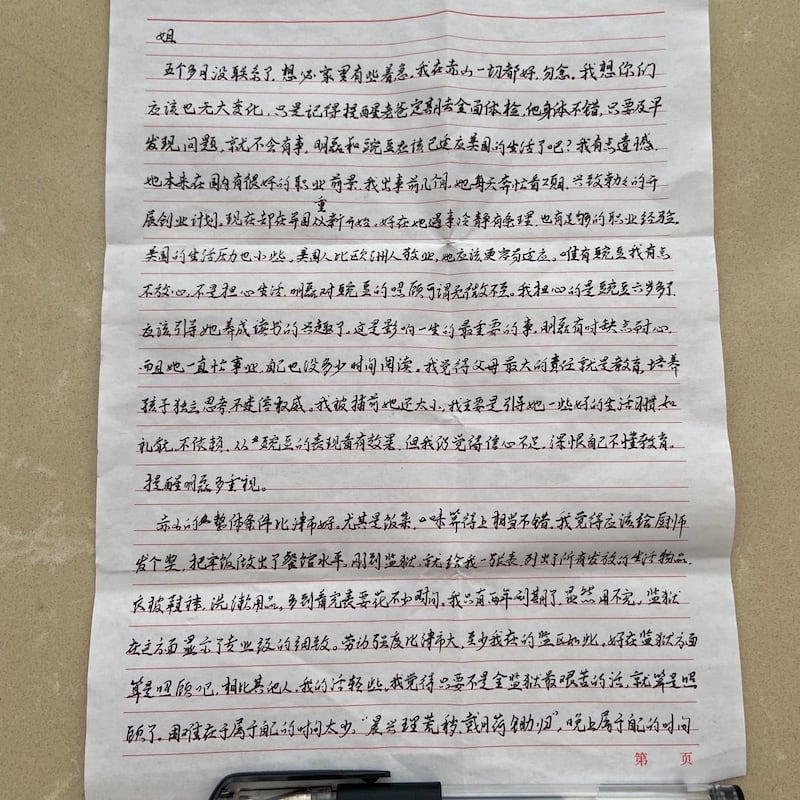 姐
五个多月没联系了，想必家里有些着急。我在赤山一切都好，勿念。我想你们
应该也无大变化，只是记得提醒老爸定期去全面体检，他身体不错，只要及早
发现问题，就不会有事，明磊和豌豆应该已适应美国的生活了吧？我有点遗憾，
她本来在国内有很好的职业前景，我出事前几个月，她每天奔忙看项目，兴致勃勃的开
重
展创业计划。现在却在异国从新开始，好在她遇事冷静有条理，也有足够的职业经验。
美国的生活压力也小些，美国人比欧洲人敬业，她应该更容易适应。唯有豌豆我有点
不放心，不是担心生活，明磊对豌豆的照顾可谓无微不至。我担心的是豌豆六岁多了，
应该引导她养成读书的兴趣了。这是影响一生的最重要的事，明磊有时缺点耐心，
而且她一直忙事业，自己也没多少时间阅读。我觉得父母最大的责任就是教育，培养
孩子独立思考不迷信权威。我被捕前她还太小，我主要是引导她一些好的生活习惯，如
礼貌，不依赖，从豌豆的表现看有效果，但我仍觉得信心不足，深恨自己不懂教育。
提醒明磊多重视。
赤山的整体条件比津市好。尤其是饭菜，口味算得上相当不错。我觉得应该给厨师
发个奖，把牢饭做出了餐馆水平。刚到监狱，就给我一张表，列出了所有发放的生活物品，
衣被鞋袜，洗漱用品，多到看完表要花不少时间。我只有两年刑期了，显然用不完。监狱
在这方面显示了专业级的细致。劳动强度比津市大，至少我在的监区如此，好在监狱方面
算是照顾吧，相比其他人，我的活轻些，我觉得只要不是全监狱最艰苦的活，就算是照
顾了。困难在于属于自己的时间太少，“晨兴理荒秽，戴月荷锄归”，晚上属于自己的时间
第 页